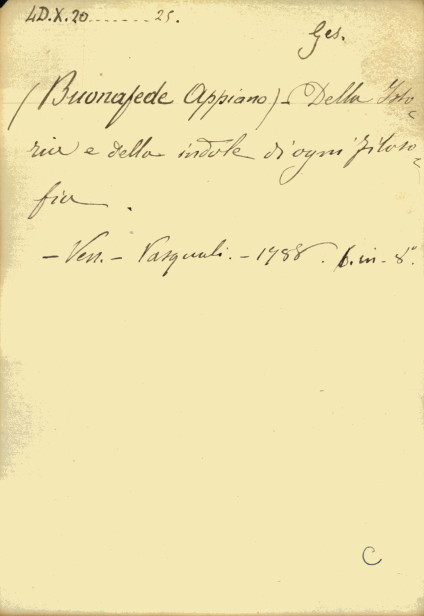 4D.X.20........25.
Ges.
(Buonafede Appiano) - Della Isto-
ria e della indole di ogni filoso-
fia.
- Ven. - Pasquali. - 1788. 6. in - 8°
C